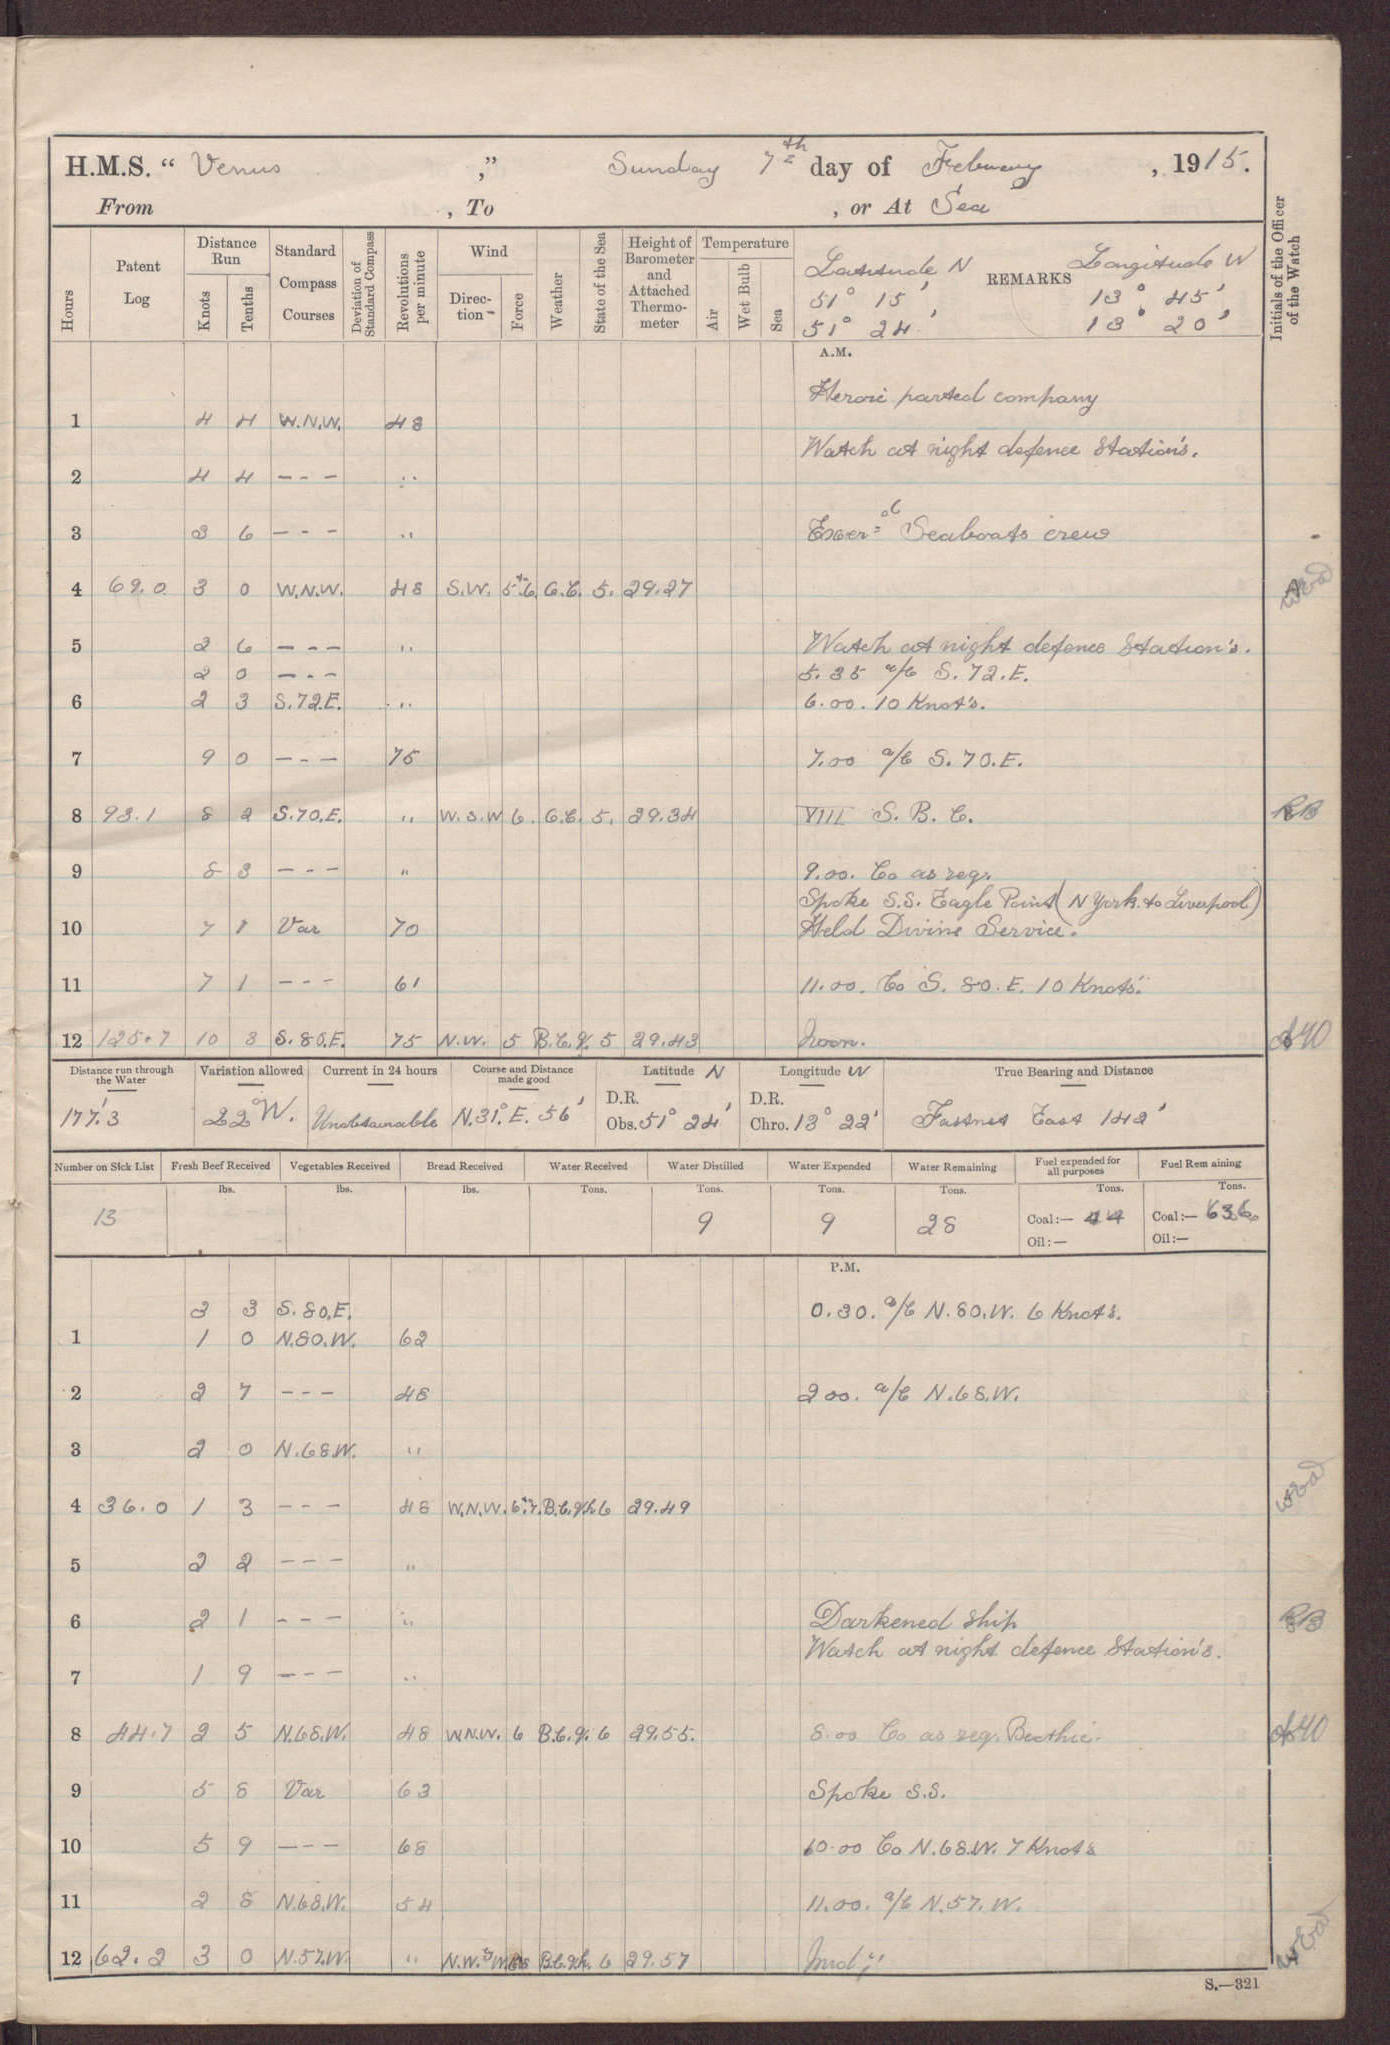 H.M.S. “ Venus ,” Sunday 7th day of February , 1915.
From , To , or At Sea
Hours
Patent Log
Distance Run
Knots
Tenths
Standard Compass Courses
Deviation of Standard Compass
Revolutions per minute
Wind
Direction
Force
Weather
State of the Sea
Height of Barometer and Attached Thermometer
Temperature
Air
Wet Bulb
Sea
REMARKS
Initials of the Officer of the Watch
Latitude N Longitude W
51° 15' 13° 45'
51° 24' 13° 20'
A.M.
Heroic parted company
1 4 4 W.N.W. 48
Watch at night defence Station's.
2 4 4 - - - "
3 3 6 - - - " Exer= Seaboats crew
4 69.0 3 0 W.N.W. 48 S.W. 5+6 O.C. 5. 29.27
5 2 6 - - - " Watch at night defence Station's.
2 0 - - - 5.35 a/c S.72.E.
6 2 3 S.72.E. " 6.00. 10 Knot's.
7 9 0 - - - 75 7.00 a/c S.70.E.
8 93.1 8 2 S.70.E. " W.S.W 6. O.C. 5. 29.34 VIII S.B.C. RB
9 8 3 - - - " 9.00. Co as reqr.
Spoke S.S. Eagle Point (N York. to Liverpool)
10 7 1 Var 70 Held Divine Service.
11 7 1 - - - 61 11.00. Co S.80.E. 10 Knots.
12 125.7 10 3 S.80.E. 75 N.W. 5 B.C.q. 5 29.43 Noon.
Distance run through the Water
Variation allowed
Current in 24 hours
Course and Distance made good
Latitude N
Longitude W
True Bearing and Distance
177.'3 22° W. Unobtainable N.31°.E. 56' D.R. Obs. 51° 24' D.R. Chro. 13° 22' Fastnet East 142'
Number on Sick List
Fresh Beef Received
Vegetables Received
Bread Received
Water Received
Water Distilled
Water Expended
Water Remaining
Fuel expended for all purposes
Fuel Remaining
lbs. lbs. lbs. Tons. Tons. Tons. Tons. Tons. Tons.
13 9 9 28 Coal:— 44 Coal:— 636
Oil:— Oil:—
P.M.
3 3 S.80.E. 0.30. a/c N.80.W. 6 Knot's.
1 1 0 N.80.W. 62
2 2 7 - - - 48 2.00. a/c N.68.W.
3 2 0 N.68.W. "
4 36.0 1 3 - - - 48 W.N.W. 6+7. B.C.q.h. 6 29.49
5 2 2 - - - "
6 2 1 - - - " Darkened ship RB
Watch at night defence Station's.
7 1 9 - - - "
8 44.7 2 5 N.68.W. 48 W.N.W. 6 B.C.q. 6 29.55. 8.00 Co as reqr.
9 5 8 Var 63 Spoke S.S.
10 5 9 - - - 68 10.00 Co N.68.W. 7 Knots
11 2 8 N.68.W. 54 11.00. a/c N.57.W.
12 62.2 3 0 N.57.W. " B.C.q.h. 6 29.57 Midt
S.—321